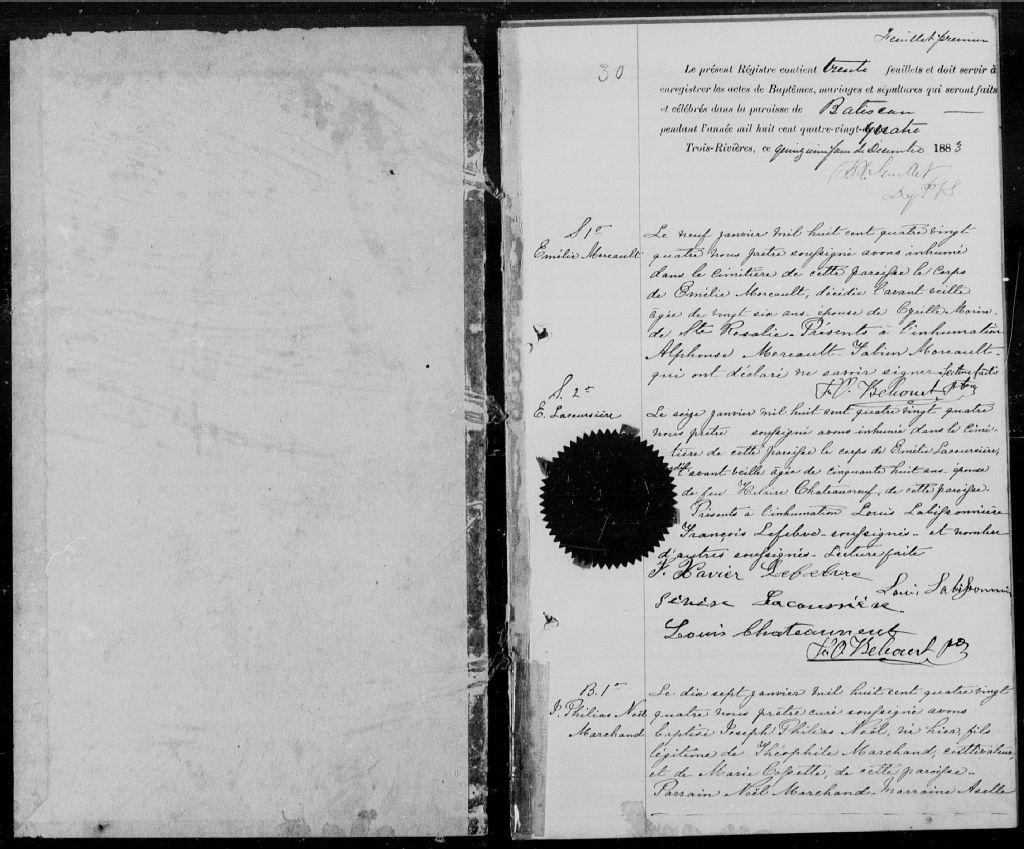 Feuillet premier
30
Le présent Régistre contient trente feuillets et doit servir à
enregistrer les actes de Baptêmes, mariages et sépultures qui seront faits
et célébrés dans la paroisse de Batiscan
pendant l'année mil huit cent quatre-vingt-quatre
Trois-Rivières, ce quinzième jour de Décembre 1883
S 1e
Emélie Moreault
Le neuf janvier mil huit cent quatre vingt
quatre nous prêtre soussigné avons inhumé
dans le cimitière de cette paroisse le corps
de Emélie Moreault, décédée l'avant veille
âgée de vingt six ans épouse de Cyrille Morin
de Ste Rosalie. Présents à l'inhumation
Alphonse Moreault Fabien Moreault
qui ont déclaré ne savoir signer. Lecture faite
S. 2e
E. Lacoursière
Le seize janvier mil huit cent quatre vingt quatre
nous prêtre soussigné avons inhumé dans le cimi-
tière de cette paroisse le corps de Emélie Lacoursière,
l'avant veille âgée de cinquante huit ans épouse
de feu Hilaire Chateauneuf, de cette paroisse.
Présents à l'inhumation Louis Labissonnière
François Lefebvre soussignés et nombre
d'autres soussignés. Lecture faite
F. Xavier Lefebvre
Louis Labissonnière
Lacoursière
Louis Chateauneuf
B. 1e
J. Philias Noël
Marchand
Le dix sept janvier mil huit cent quatre vingt
quatre nous prêtre curé soussigné avons
baptisé Joseph Philias Noël, né hier, fils
légitime de Théophile Marchand, cultivateur,
et de Marie Cossette, de cette paroisse.
Parrain Noël Marchand. Marraine Aselle